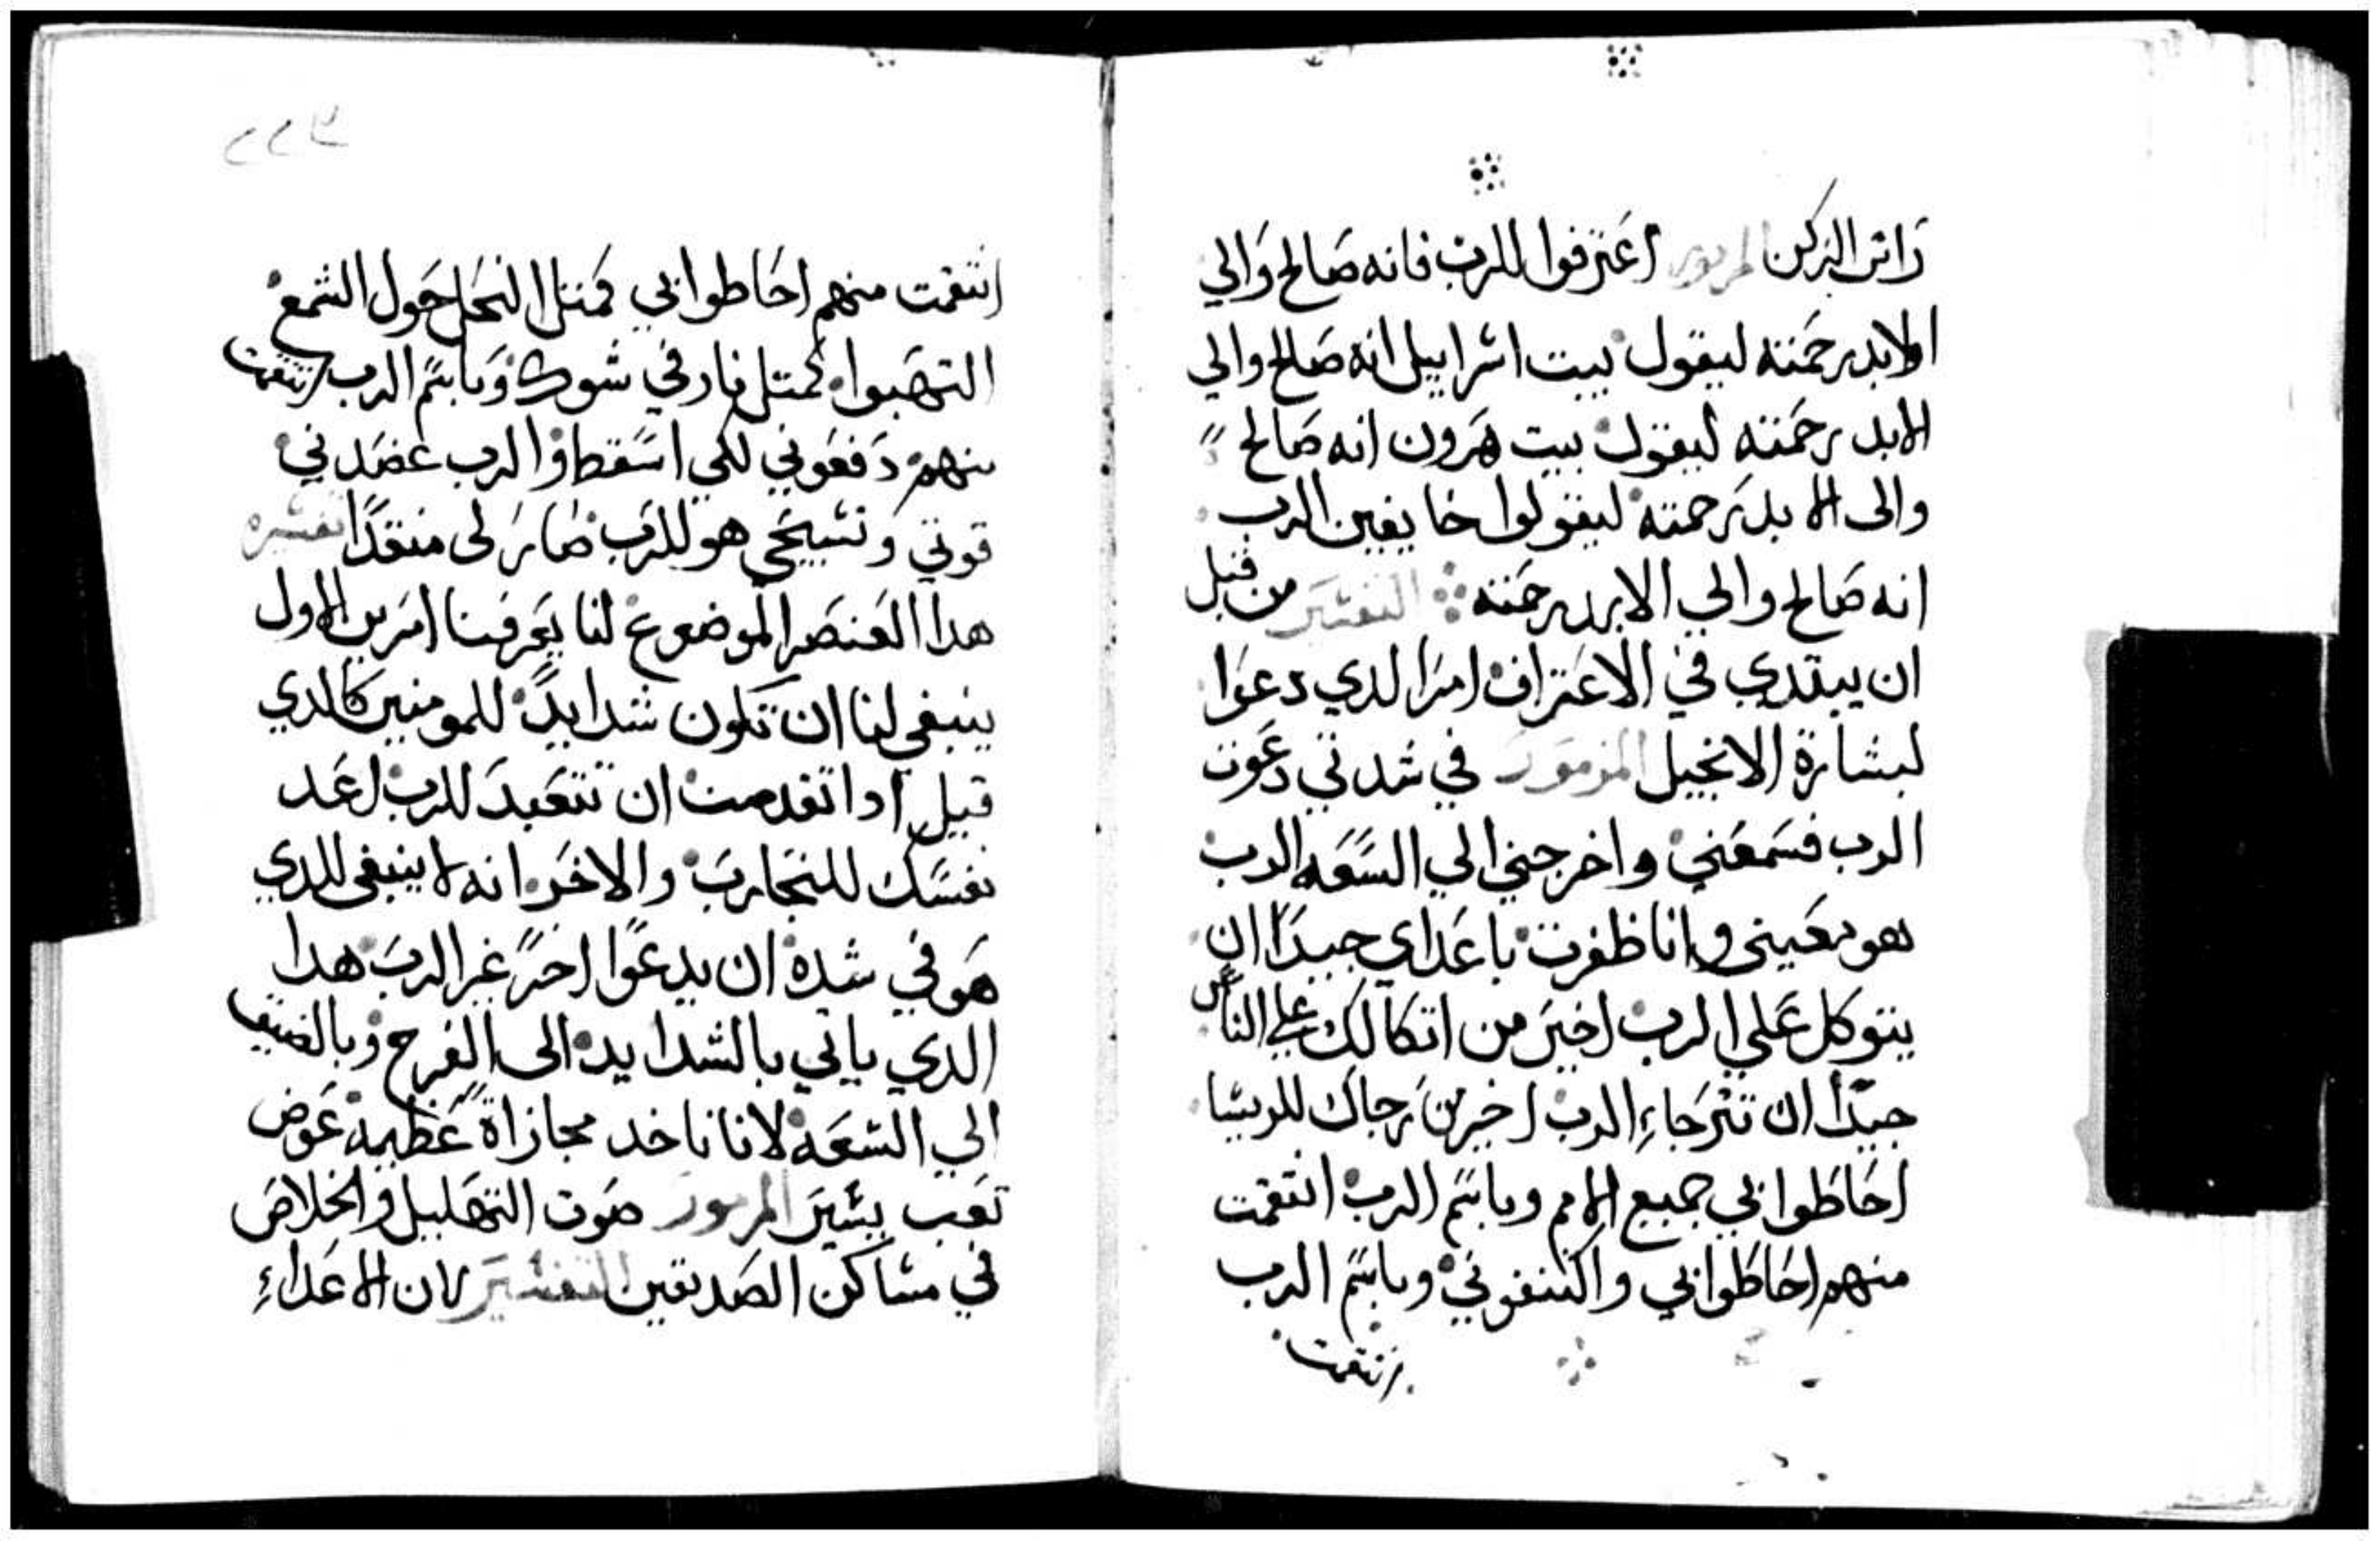 راس الركن المزمور اعترفوا للرب فانه صالح والي
الابد رحمته ليقول بيت اسراييل انه صالح والي
الابد رحمته ليقول بيت هرون انه صالح
والى الابد رحمته ليقولوا خايفين الرب
انه صالح والي الابد رحمته التفسير من قبل
ان يبتدي في الاعتراف امرا لدي دعوا
لبشارة الانجيل المزمور في شدتي دعوت
الرب فسمعني واخرجني الي السعه الرب
هو معيني وانا ظفرت باعداي جيدا ان
يتوكل علي الرب اخير من اتكالك علي الناس
جيدا ان تترجاء الرب اخير من رجاك للريسا
احاطوا بي جميع الامم وباسم الرب انتقمت
منهم احاطوا بي واكتنفوني وباسم الرب
انتقمت
٢٢٩
انتقمت منهم احاطوا بي كمتل النحل حول الشمع
التهبوا كمتل نار في شوك وباسم الرب انتقمت
منهم دفعوني لكي اسقط والرب عضدني
قوتي وتسبيحي هو للرب صار لى منقدا تفسيره
هدا العنصر الموضوع لنا يعرفنا امرين الاول
ينبغي لنا ان تكون شدايد للمومنين كالدي
قيل ادا تقدمت ان تتعبد للرب اعد
نفسك للتجارب والاخر انه لا ينبغى للدي
هو في شدة ان يدعوا اخر غير الرب هدا
الدي ياتي بالشدايد الى الفرج وبالضيق
الي السعه لانا ناخد مجازاة عظيمة عوض
تعب يسير المزمور صوت التهليل والخلاص
في مساكن الصديقين التفسير لان الاعداء